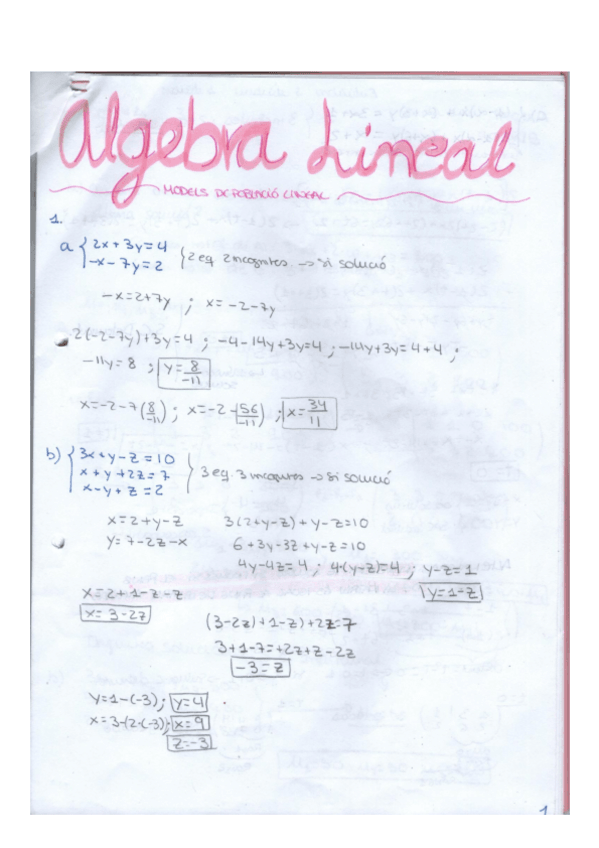 Algebra Lineal
MODELS DE POBLACIÓ LINEAL
1.
a { 2x+3y=4
-x-7y=2 } 2 eq. 2 incognites → si solució
-x=2+7y ; x=-2-7y
2(-2-7y)+3y=4 ; -4-14y+3y=4 ; -14y+3y=4+4 ;
-11y=8 ; y=8/-11
x=-2-7(8/-11) ; x=-2-56/-11 ; x=34/11
b) { 3x+y-z=10
x+y+2z=7 } 3 eq. 3 incognites → si solució
x-y+z=2
x=2+y-z 3(2+y-z)+y-z=10
y=7-2z-x 6+3y-3z+y-z=10
4y-4z=4 ; 4(y-z)=4 ; y-z=1
x=2+1-z-z y=1-z
x=3-2z
(3-2z)+1-z)+2z=7
3+1-7=+2z+z-2z
-3=z
y=1-(-3) ; y=4
x=3-(2·(-3) ; x=9
z=-3
1